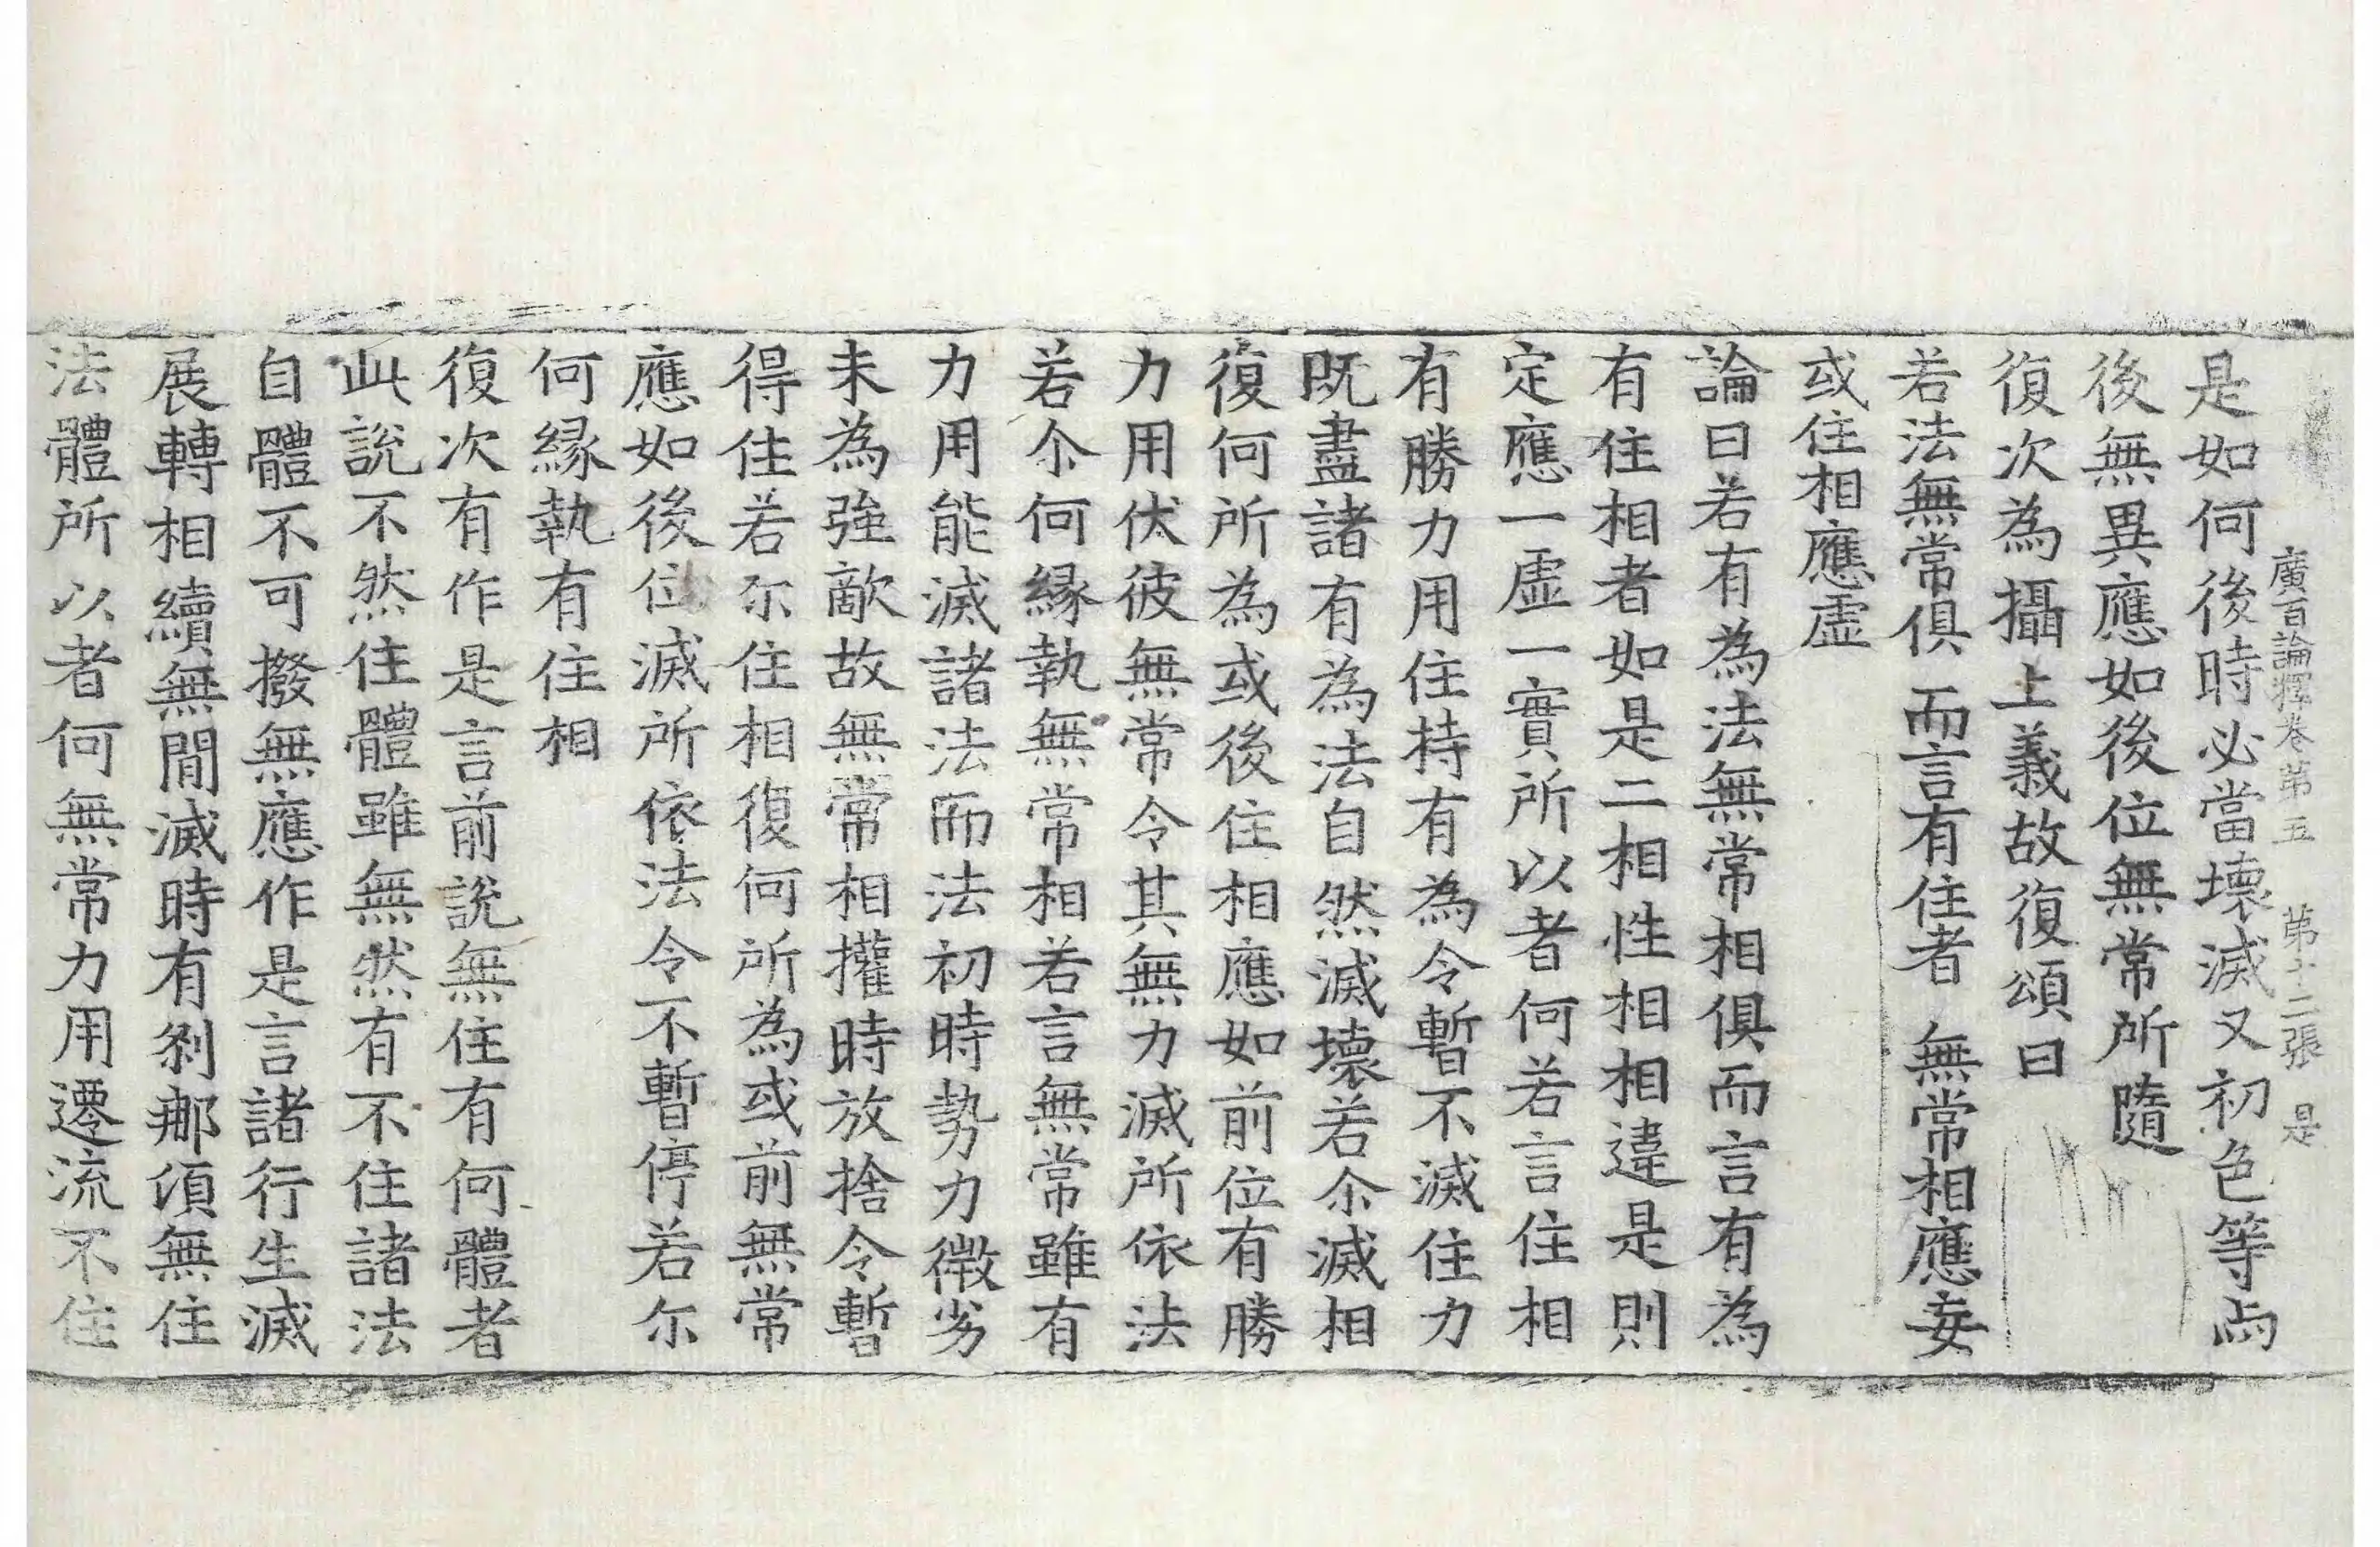 廣百論釋卷第五　第十二張　是
是如何後時必當壞滅又初色等与
後無異應如後位無常所隨
復次為攝上義故復頌曰
若法無常俱　而言有住者　無常相應妄
或住相應虛
論曰若有為法無常相俱而言有為
有住相者如是二相性相相違是則
定應一虛一實所以者何若言住相
有勝力用住持有為令暫不滅住力
既盡諸有為法自然滅壞若尒滅相
復何所為或後住相應如前位有勝
力用伏彼無常令其無力滅所依法
若尒何緣執無常相若言無常雖有
力用能滅諸法而法初時勢力微劣
未為強敵故無常相攉時放捨令暫
得住若尔住相復何所為或前無常
應如後位滅所依法令不暫停若尔
何緣執有住相
復次有作是言前說無住有何體者
此說不然住體雖無然有不住諸法
自體不可撥無應作是言諸行生滅
展轉相續無間滅時有剎那頃無住
法體所以者何無常力用遷流不住